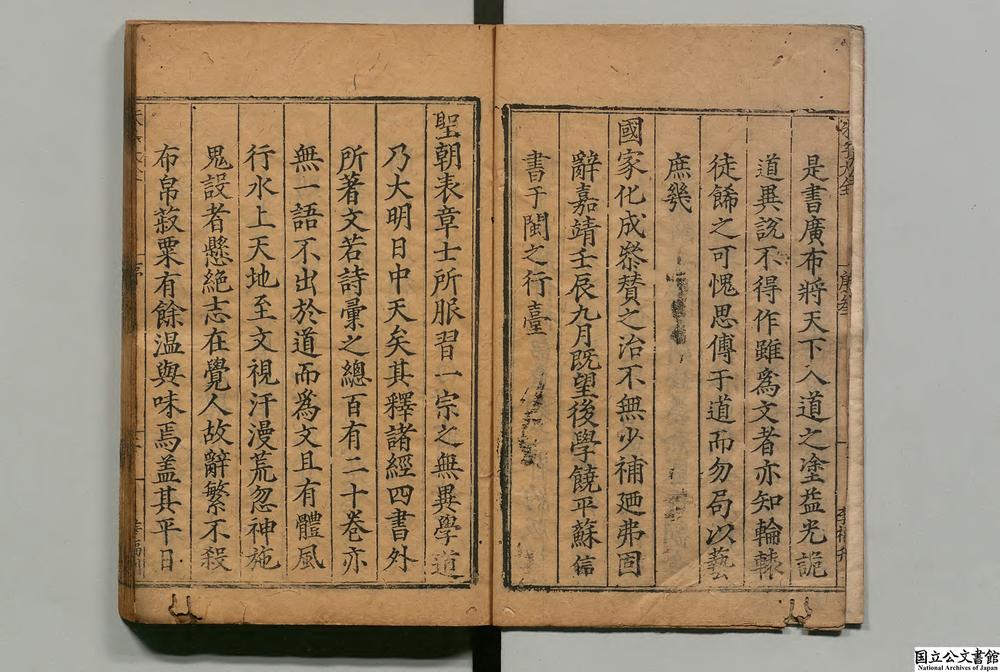 是書廣布將天下入道之塗益光詭
道異說不得作雖爲文者亦知輪轅
徒餙之可愧思傳于道而勿局以藝
庶幾
國家化成叅賛之治不無少補廼弗固
辭嘉靖壬辰九月旣望後學饒平蘇信
書于閩之行臺
聖朝表章士所服習一宗之無異學道
乃大明日中天矣其釋諸經四書外
所著文若詩彙之總百有二十卷亦
無一語不出於道而爲文且有體風
行水上天地至文視汗漫荒忽神施
鬼設者懸絕志在覺人故辭繁不殺
布帛菽粟有餘温與味焉盖其平日
国立公文書館
National Archives of Japan